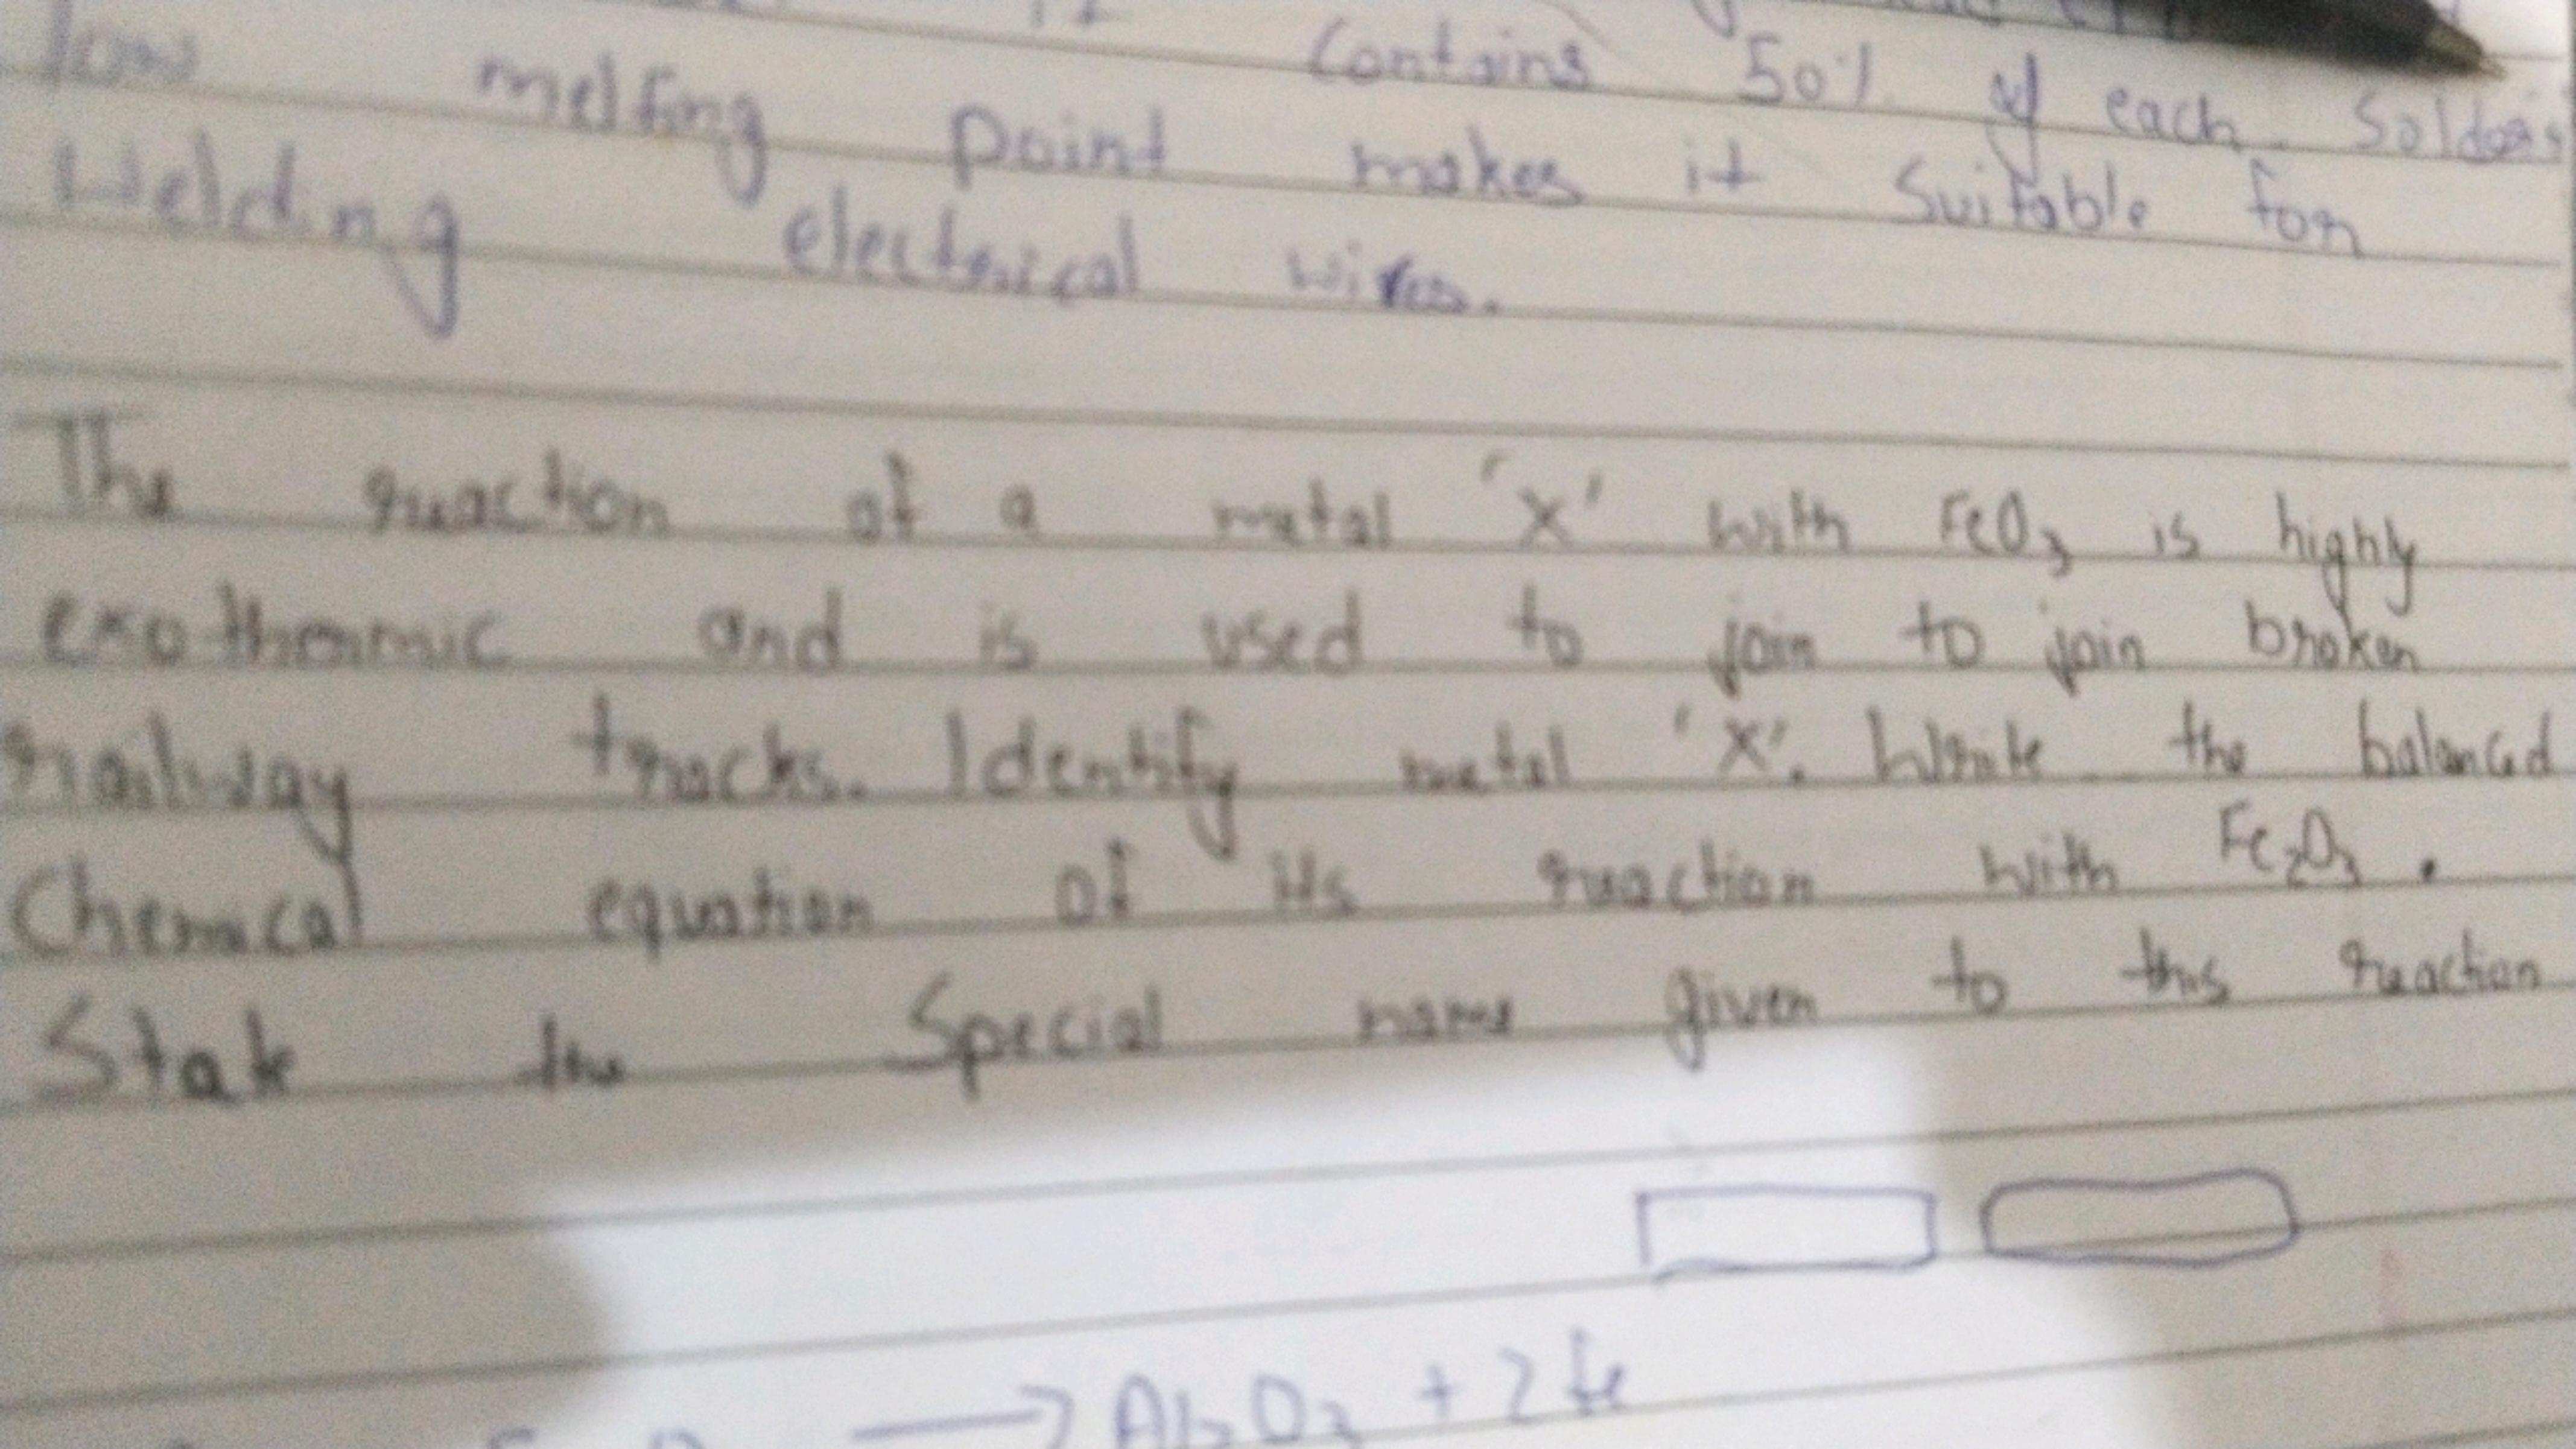 It contains 50% of each. Solders
low melting point makes it suitable for
Welding electrical wires.
The reaction of a metal 'X' with FeO₃ is highly
exothermic and is used to join to join broken
railway tracks. Identify metal 'X'. Write the balanced
Chemical equation of its reaction with Fe₂O₃.
State the Special name given to this reaction
⟶ Al₂O₃ + 2fe